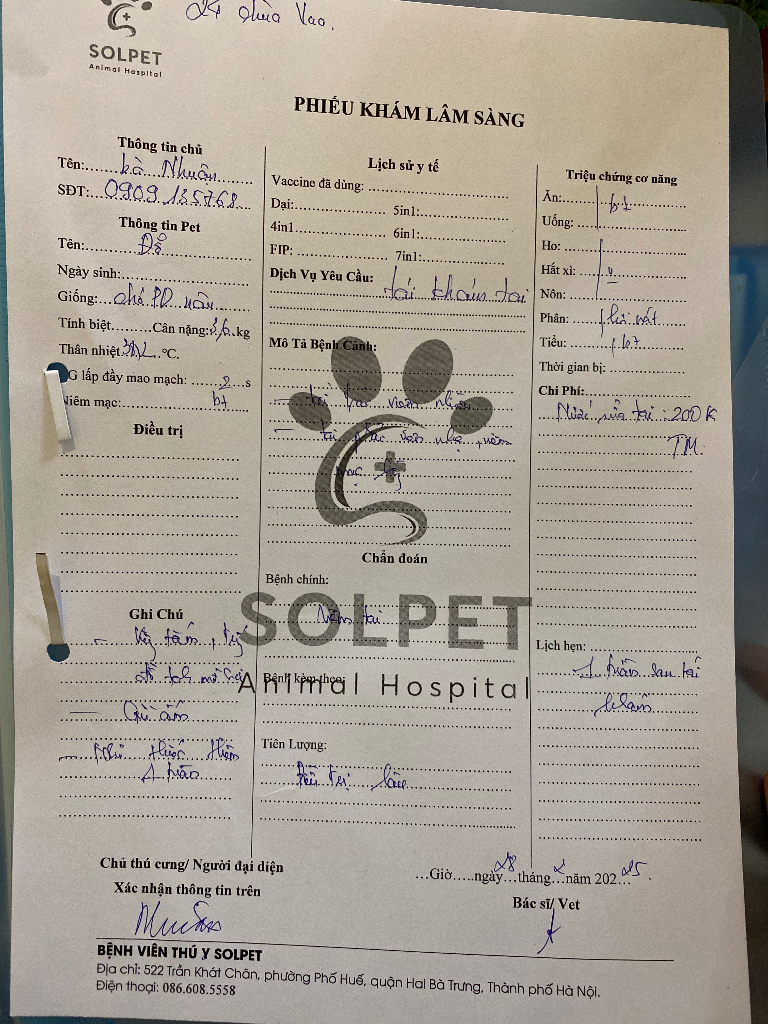 24 chùa Vua.
SOLPET
Animal Hospital
PHIẾU KHÁM LÂM SÀNG
Thông tin chủ
Tên: bà Nhuận
SĐT: 0909 135768
Thông tin Pet
Tên: Đỗ
Ngày sinh:
Giống: chó PD nâu
Tính biệt Cân nặng: 3,6 kg
Thân nhiệt °C.
G lấp đầy mao mạch: 2 s
Niêm mạc: bt
Điều trị
Ghi Chú
- Kỵ tắm,
- Giữ ấm
- Nhỏ thuốc thêm
1 tuần
Lịch sử y tế
Vaccine đã dùng:
Dại: 5in1:
4in1 6in1:
FIP: 7in1:
Dịch Vụ Yêu Cầu: tái khám tai
Mô Tả Bệnh Cảnh:
- tai viêm
- tai viêm nhẹ, nấm
Chẩn đoán
Bệnh chính:
Nấm tai
SOLPET
Animal Hospital
Bệnh kèm theo:
Tiên Lượng:
Điều trị lâu
Triệu chứng cơ năng
Ăn: bt
Uống:
Ho:
Hắt xì:
Nôn:
Phân: hơi nát
Tiểu: bt
Thời gian bị:
Chi Phí:
Nước rửa tai: 200K
TM.
Lịch hẹn:
1 tuần sau tái
khám
Chủ thú cưng/ Người đại diện
Xác nhận thông tin trên
...Giờ.....ngày 28 tháng 2 năm 202 25.
Bác sĩ/ Vet
BỆNH VIÊN THÚ Y SOLPET
Địa chỉ: 522 Trần Khát Chân, phường Phố Huế, quận Hai Bà Trưng, Thành phố Hà Nội.
Điện thoại: 086.608.5558